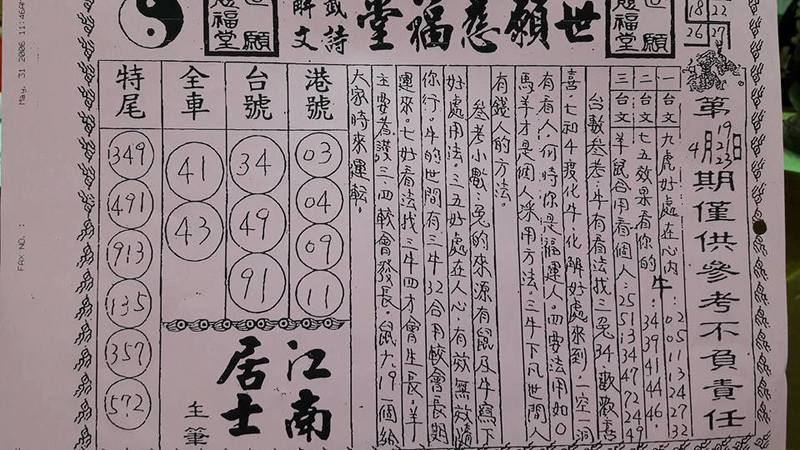 世願慈福堂
籤詩
解文
世願
慈福堂
世願
慈福堂
18 22
26 27
第19 21 23期僅供參考不負責任
4月 日
一 台文 九虎好處在心內:02 05 11 13 24 27 32
二 台文 七五效果看你的牛:34 39 41 44 46
三 台文 羊鼠合用看個人:25 13 34 47 72 24 49
台數參考:牛有看法找三兔34.歡歡喜
喜七和4變化牛化解好處來到一空一洞
有看人何時你是福運人.四要法用如0
馬羊才是個人採用方法三牛下凡世間人
有錢人的方法
參考小數:兔的來源有鼠及牛為下
好處用法.三五好處在人心.有效無效隨
你行.牛的世間有三牛32合用較會長期
運來.七好看法找三牛四才會生長.羊
主要看護三.四較會發長.鼠九19一個給
大家時來運転。
港號
03
04
09
11
台號
34
49
91
全車
41
43
特尾
1349
1491
1913
135
357
572
江南
居士
主筆
May. 31 2006 11:46A
FAX NO. :